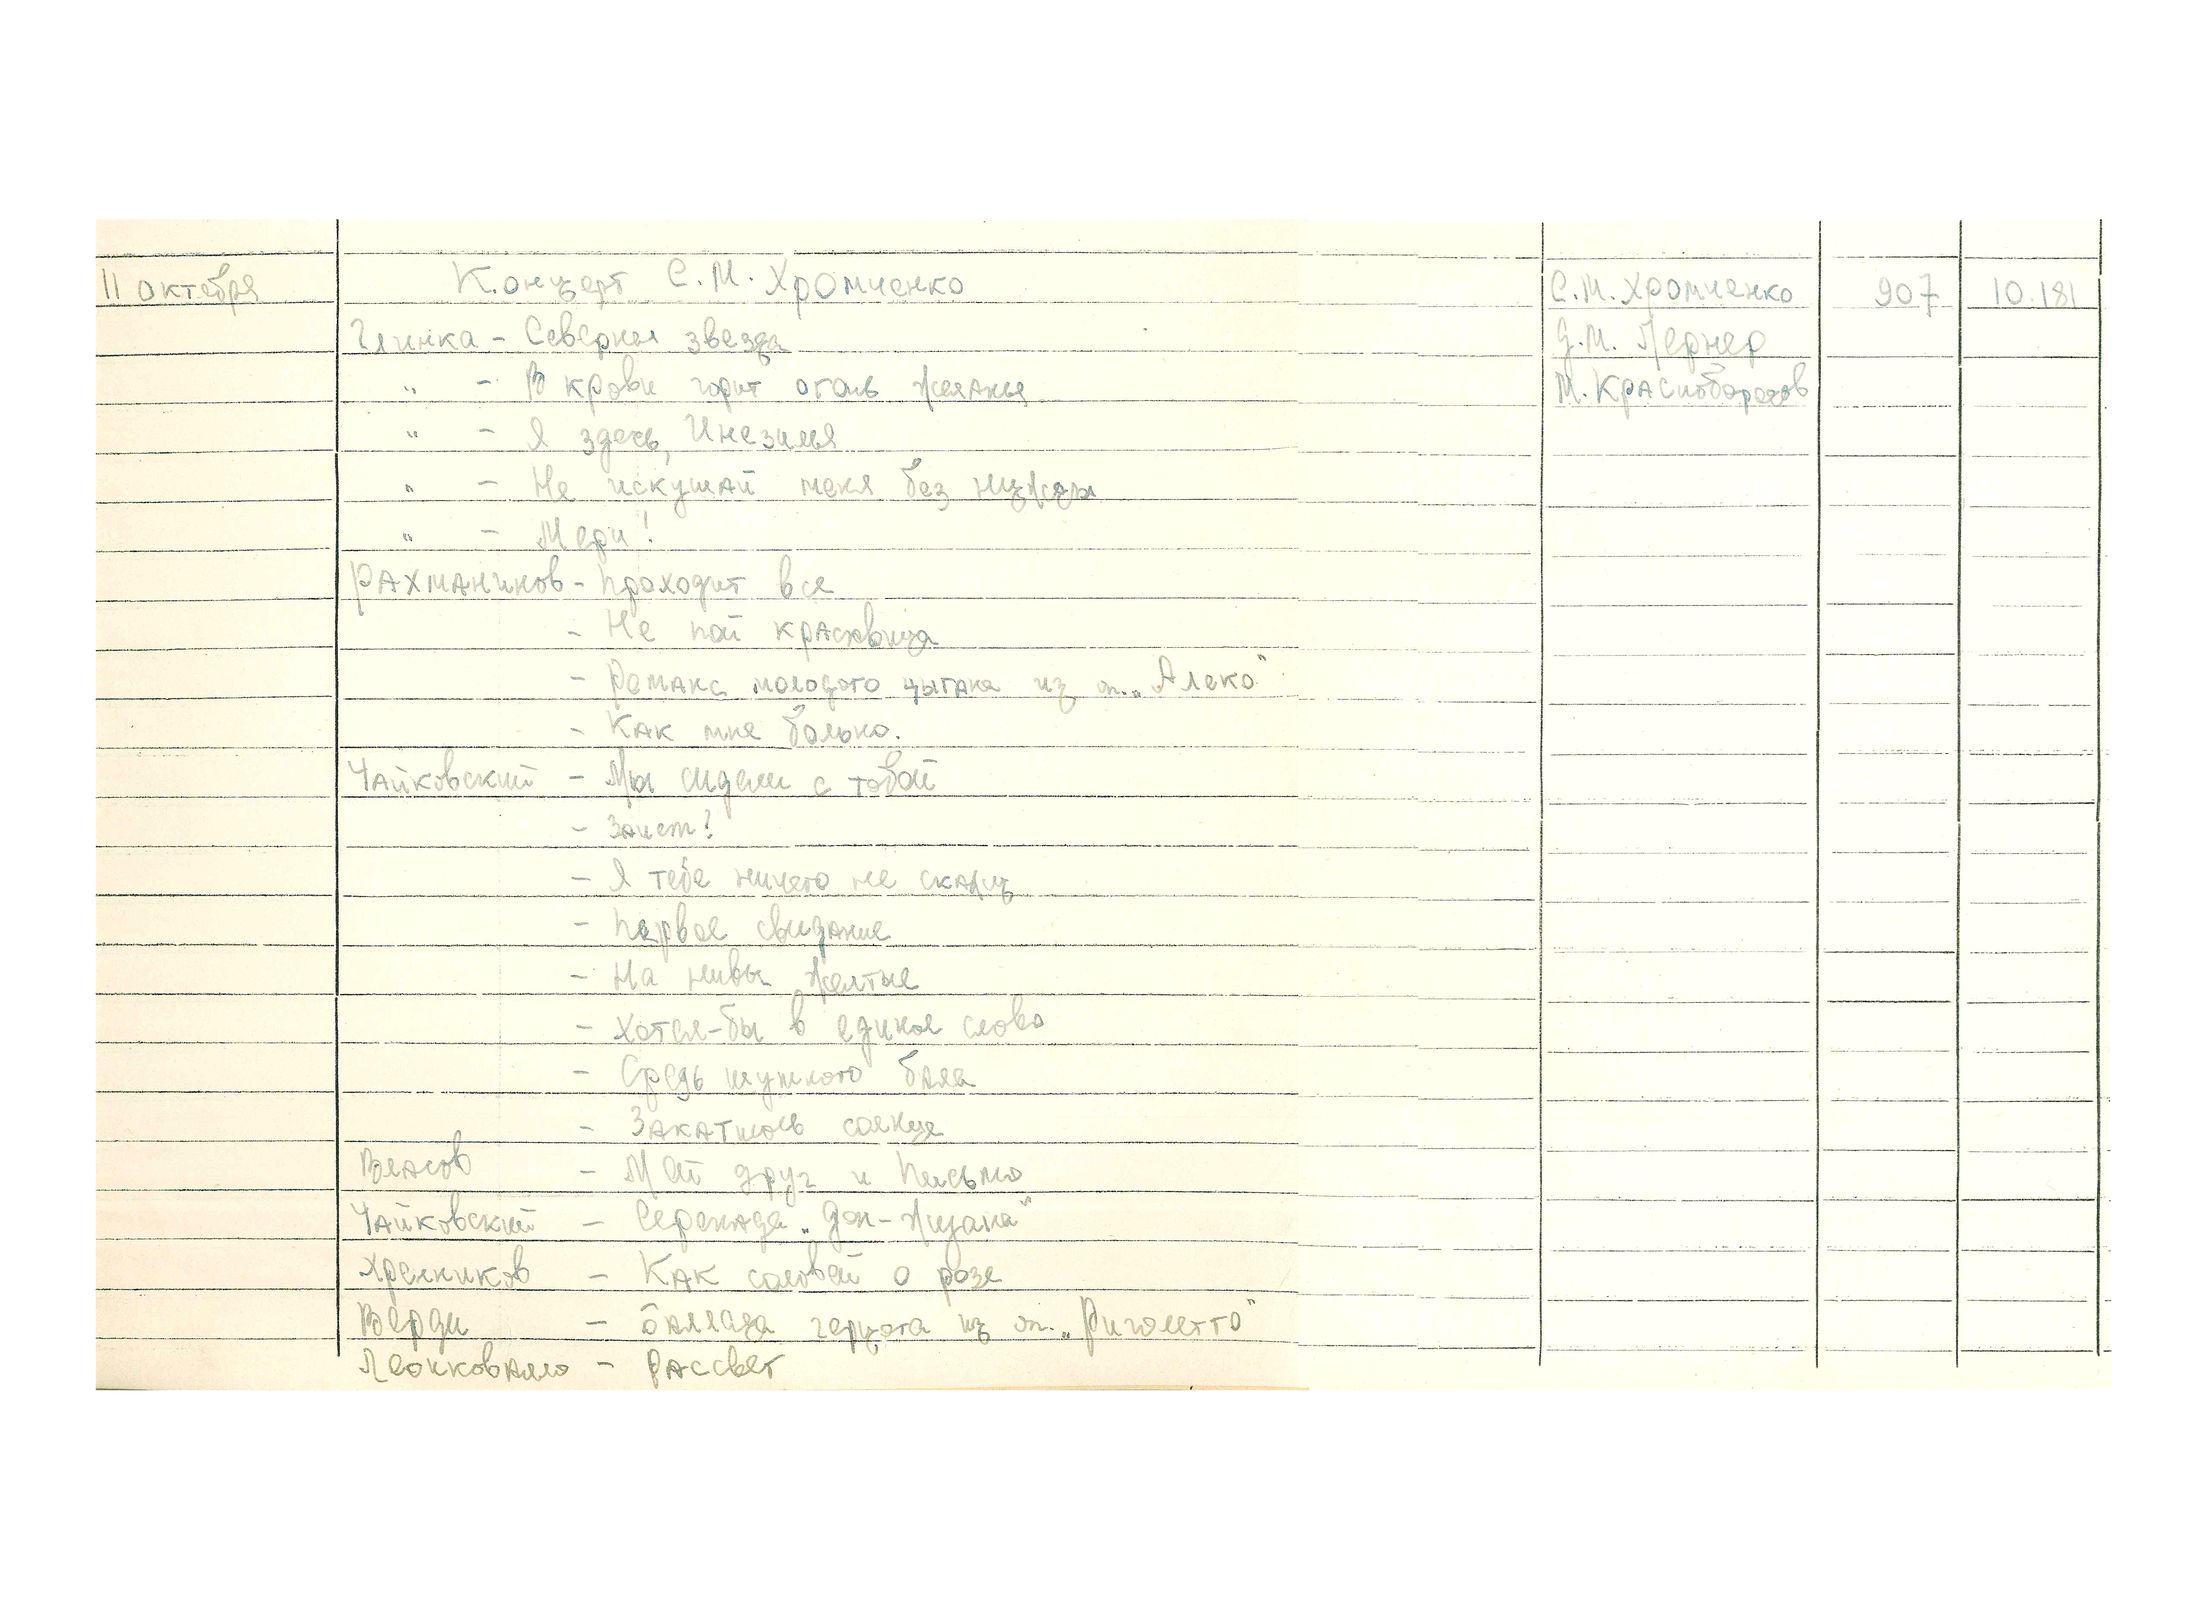 11 октября Концерт С.М. Хромченко С.М. Хромченко 907 10.181
Глинка - Северная звезда Д.М. Лернер
" - В крови горит огонь желанья М. Краснобородов
" - Я здесь, Инезилья
" - Не искушай меня без нужды
" - Мери!
Рахманинов - Проходит все
- Не пой красавица
- Романс молодого цыгана из оп. „Алеко"
- Как мне больно.
Чайковский - Мы сидели с тобой
- Зачем?
- Я тебе ничего не скажу
- Первое свидание
- На нивы желтые
- Хотел-бы в единое слово
- Средь шумного бала
- Закатилось солнце
Власов - Мой друг и Письмо
Чайковский - Серенада „Дон-Жуана"
Хренников - Как соловей о розе
Верди - баллада герцога из оп. „Риголетто"
Леонковалло - Рассвет